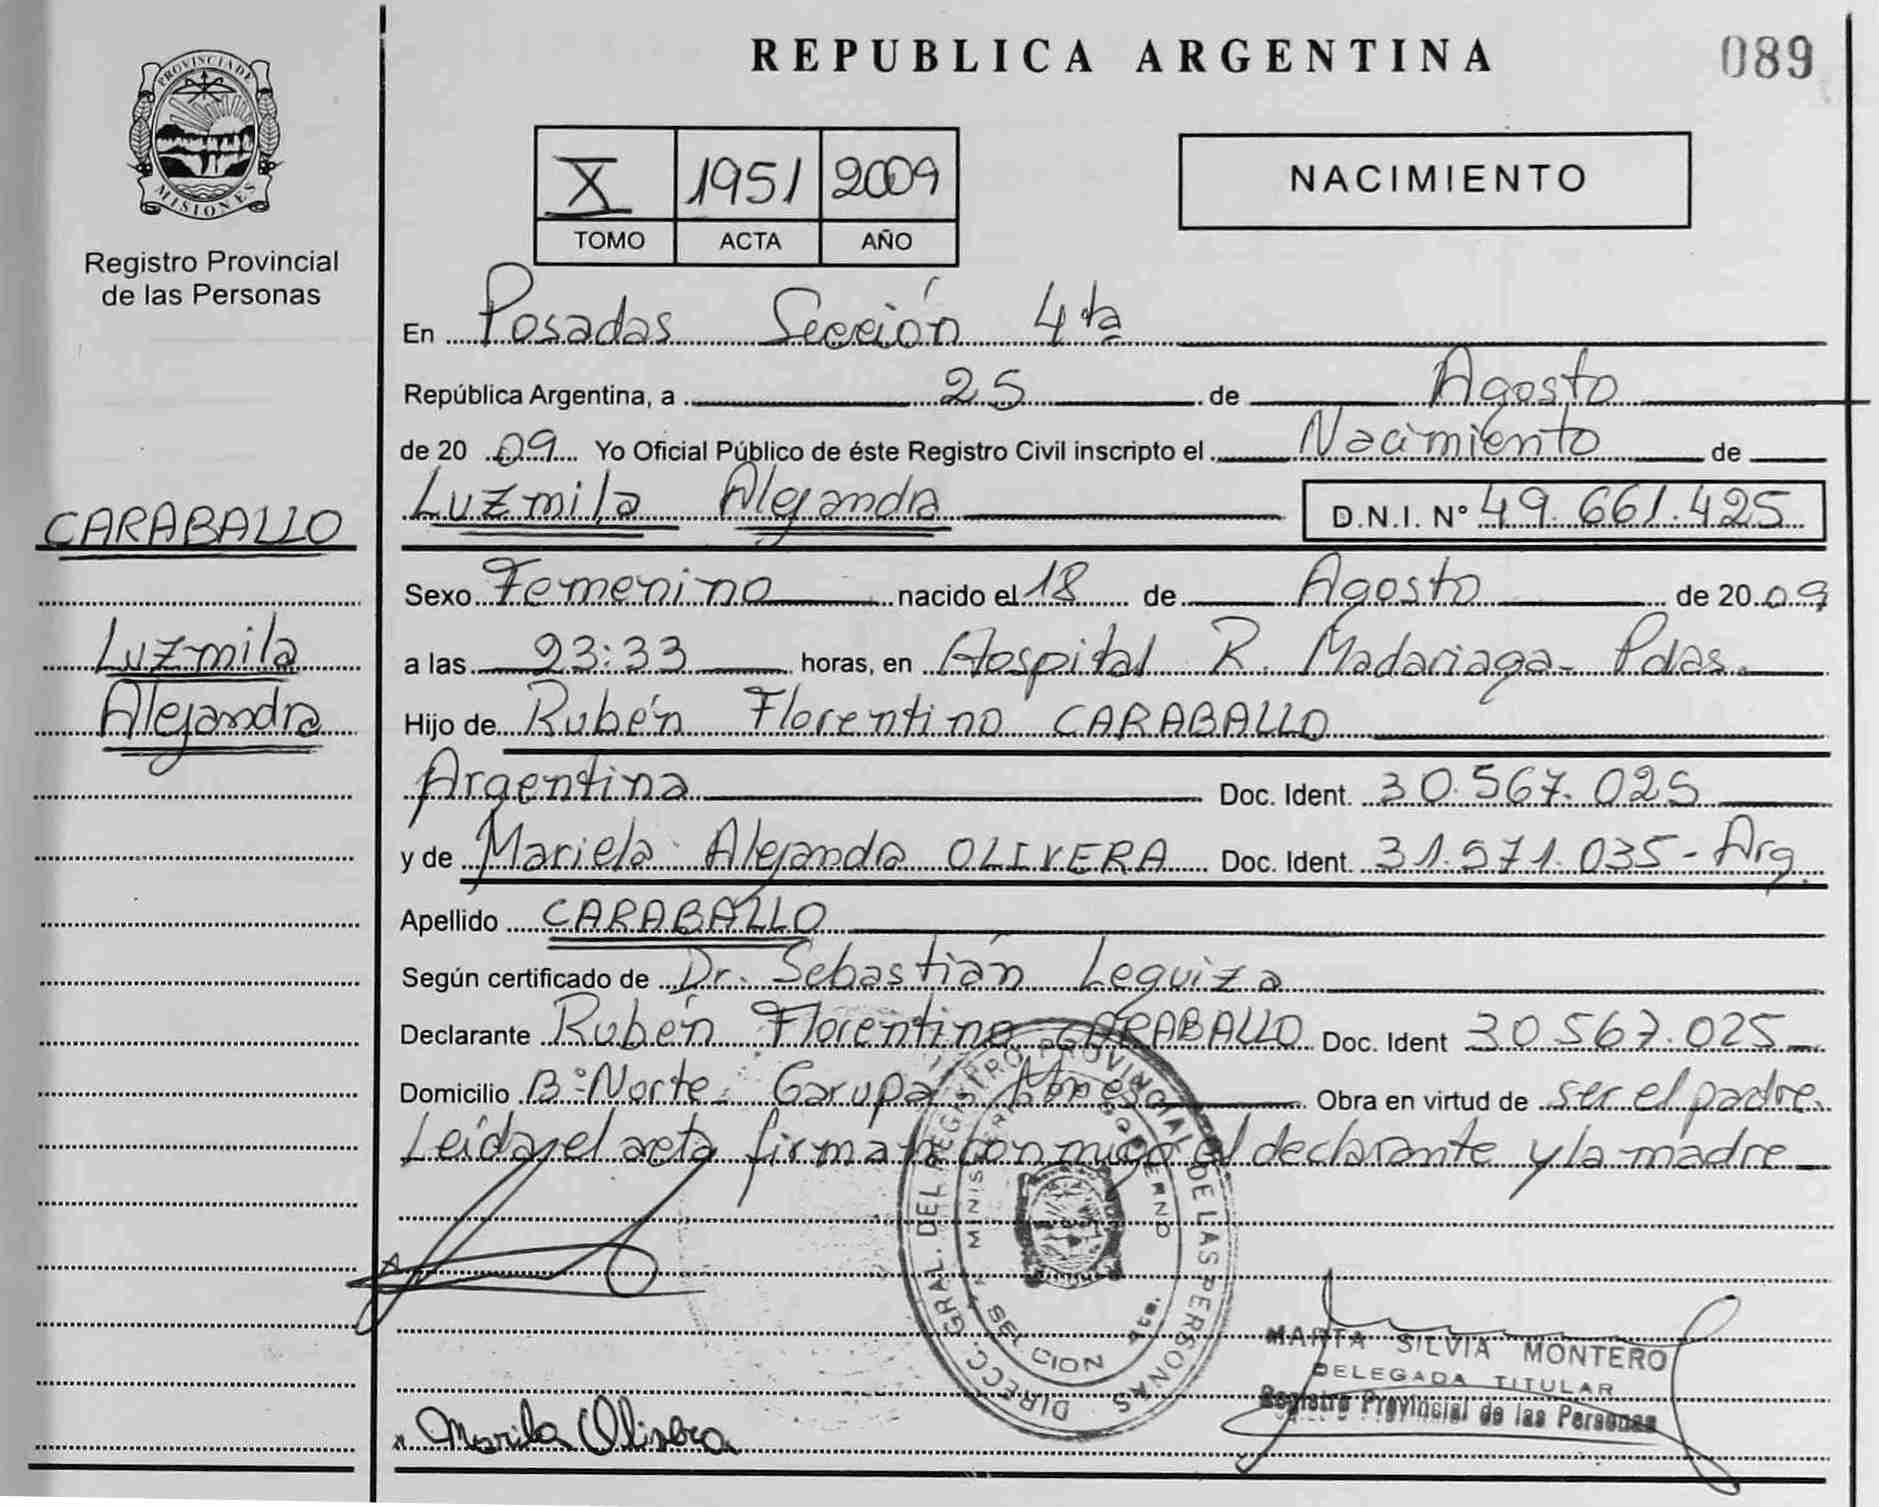 REPUBLICA ARGENTINA
089
PROVINCIA DE
MISIONES
Registro Provincial
de las Personas
X 1951 2009
TOMO ACTA AÑO
NACIMIENTO
En Posadas Sección 4ta
República Argentina, a 25 de Agosto
de 20 09 Yo Oficial Público de éste Registro Civil inscripto el Nacimiento de
Luzmila Alejandra D.N.I. N° 49.661.425
CARABALLO
Luzmila
Alejandra
Sexo Femenino nacido el 18 de Agosto de 20 09
a las 23:33 horas, en Hospital R. Madariaga - Pdas.
Hijo de Rubén Florentino CARABALLO
Argentina Doc. Ident. 30.567.025
y de Mariela Alejandra OLIVERA Doc. Ident. 31.571.035 - Arg.
Apellido CARABALLO
Según certificado de Dr. Sebastián Leguiza
Declarante Rubén Florentino CARABALLO Doc. Ident 30.567.025
Domicilio B° Norte - Garupa Mnes Obra en virtud de ser el padre.
Leída el acta firman conmigo el declarante y la madre
DIRECC. GRAL. DEL REGISTRO PROVINCIAL DE LAS PERSONAS
MINISTERIO GOBIERNO
SECCION 4ta.
MARTA SILVIA MONTERO
DELEGADA TITULAR
Registro Provincial de las Personas
Mariela Olivera